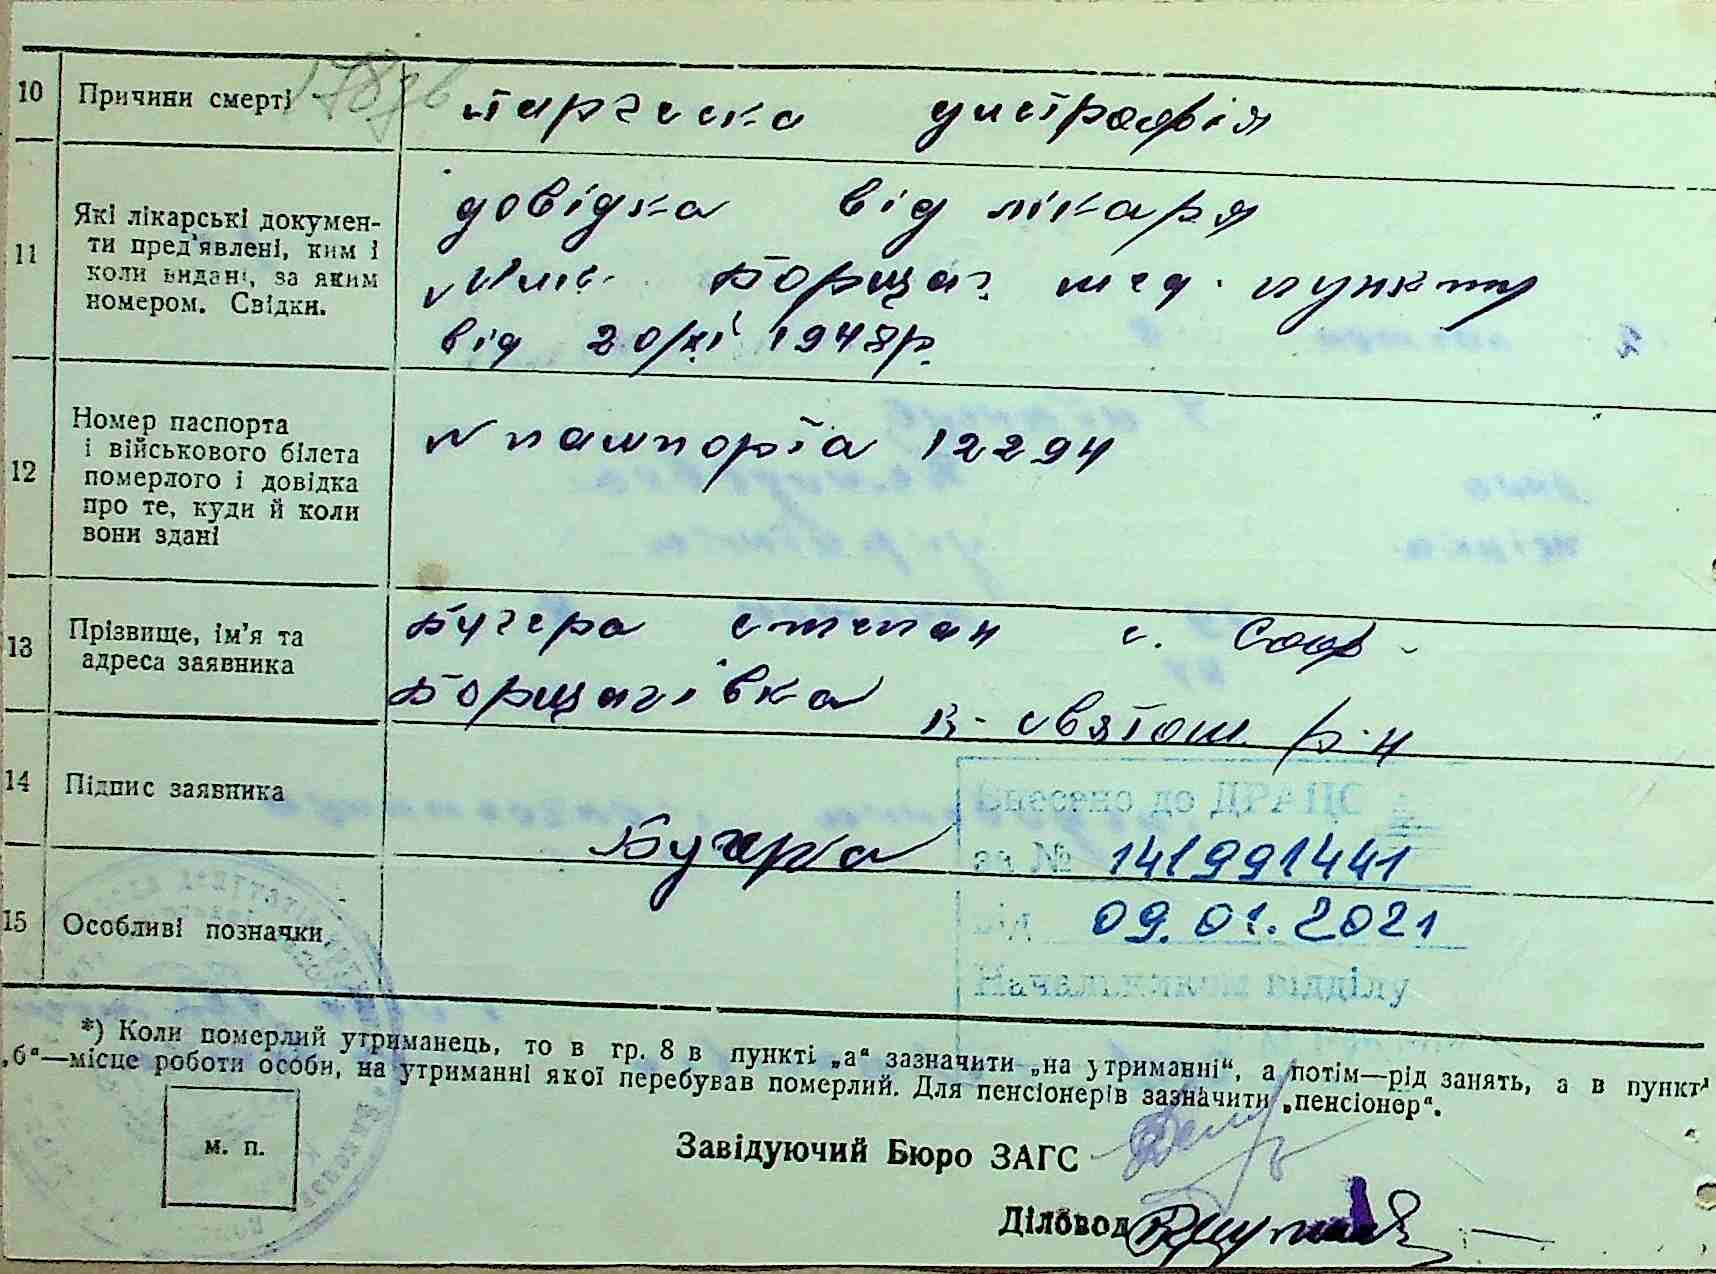 10 Причини смерті дистрофія
11 Які лікарські докумен-
ти пред'явлені, ким і
коли видані, за яким
номером. Свідки.
довідка від лікаря
Борщаг. мед. пункту
від 20/XI 1948р.
12 Номер паспорта
і військового білета
померлого і довідка
про те, куди й коли
вони здані
N паспорта 12294
13 Прізвище, ім'я та
адреса заявника
Бугера Степан с. Соф.
Борщагівка К-Святош. р-н
14 Підпис заявника
Бугера
15 Особливі позначки
Внесено до ДРАЦС
за № 141991441
від 09.01.2021
Начальником відділу
*) Коли померлий утриманець, то в гр. 8 в пункті „а“ зазначити „на утриманні“, а потім—рід занять, а в пункті
„б“—місце роботи особи, на утриманні якої перебував померлий. Для пенсіонерів зазначити „пенсіонер“.
м. п.
Завідуючий Бюро ЗАГС
Діловод